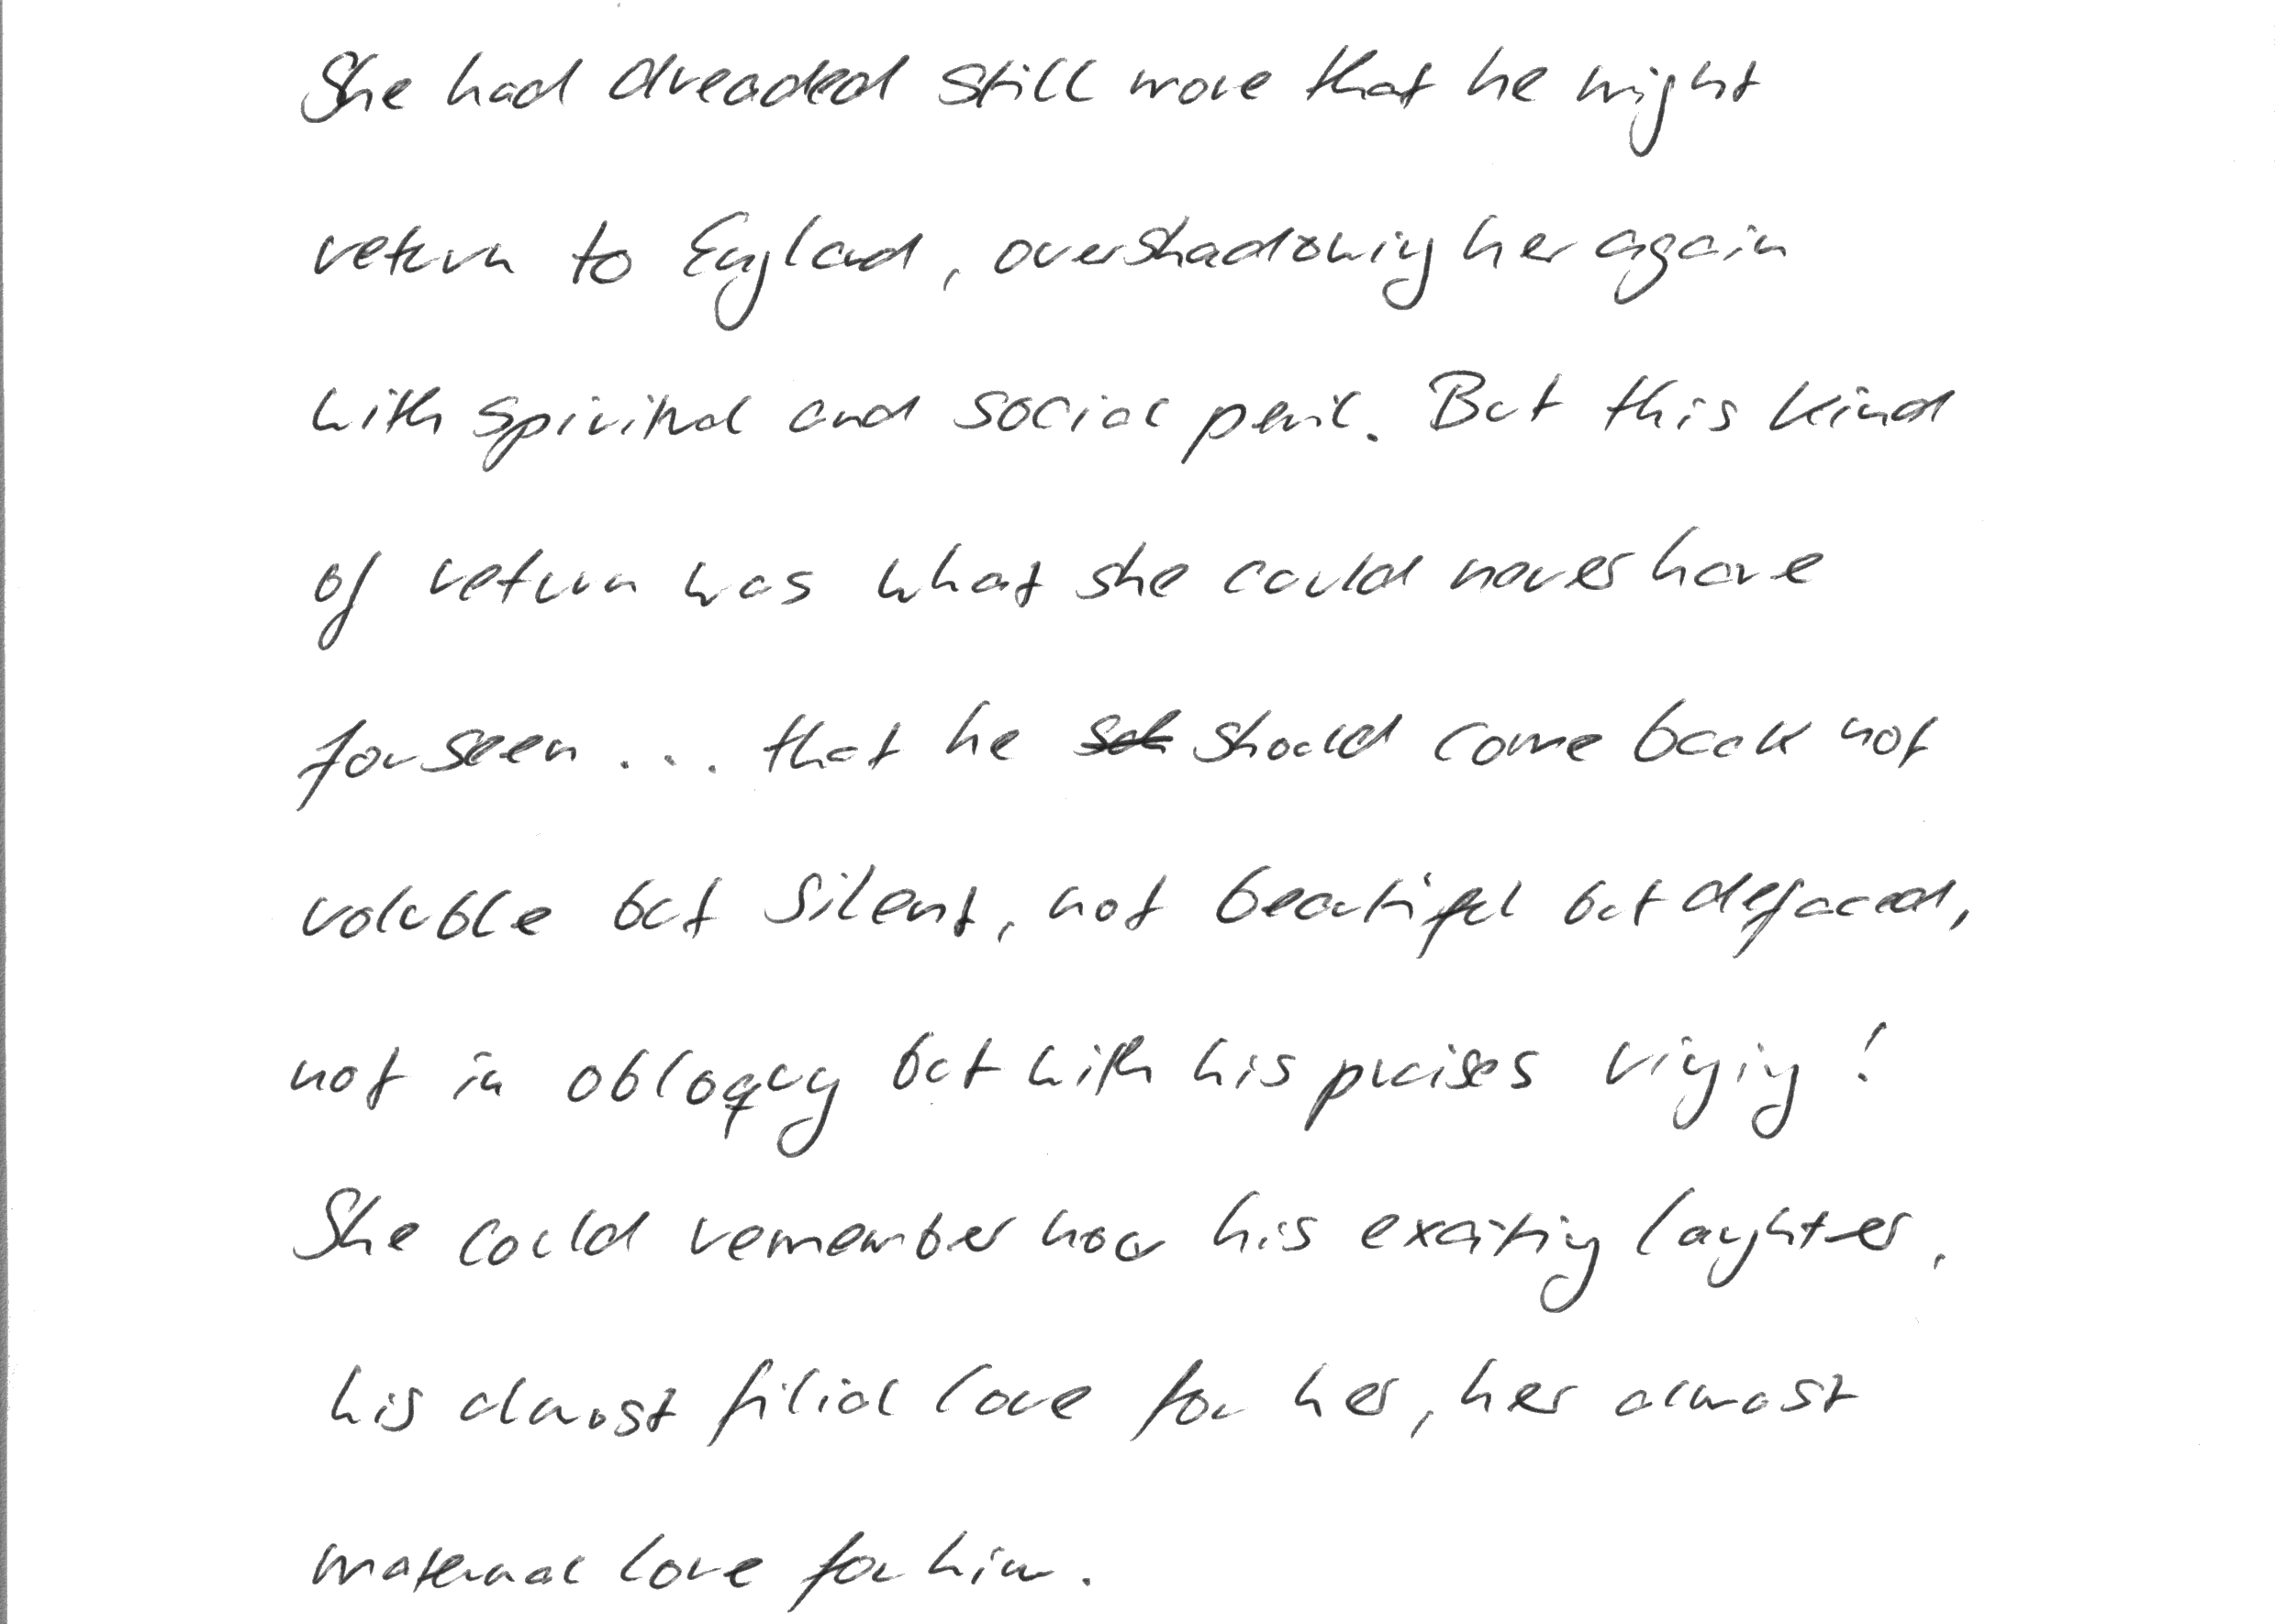 She had dreaded still more that he might
return to England, overshadowing her again
with spiritual and social peril. But this kind
of return was what she could never have
forseen ... that he should come back not
voluble but silent, not beautiful but defaced,
not in obloquy but with his praises ringing!
She could remember how his exciting laughter,
his almost filial love for her, her almost
maternal love for him.